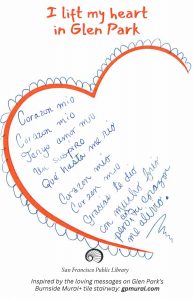 I lift my heart
in Glen Park
Corazon mio
Corazon mio
Tengo amor mio
Un suspiro
Que hasta me rio
Corazon mio
Corazon mio
Gracias te doy
con mucho brio
por tu
me alivio.
San Francisco Public Library
Inspired by the loving messages on Glen Park's
Burnside Mural+ tile stairway: gpmural.com